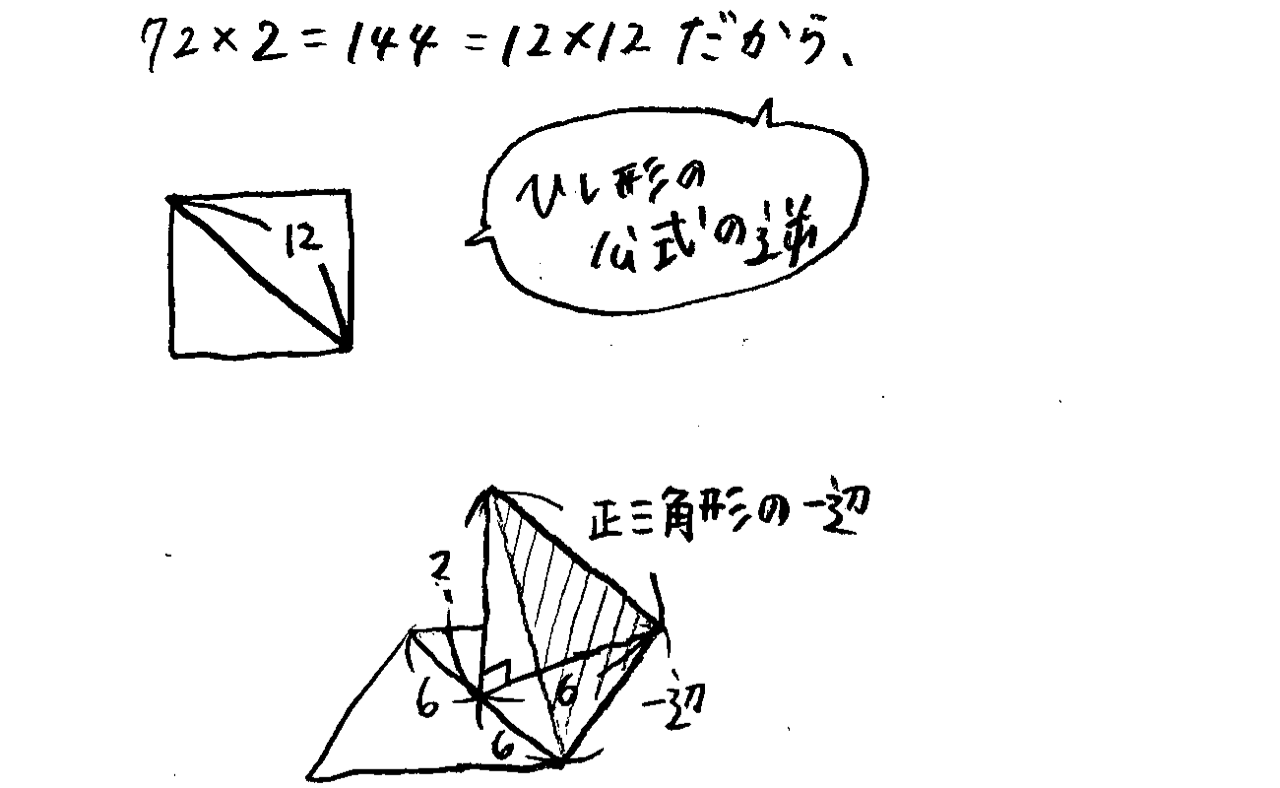 72×2=144=12×12だから、
12
ひし形の
公式の逆
正三角形の一辺
?
6
6
一辺
6